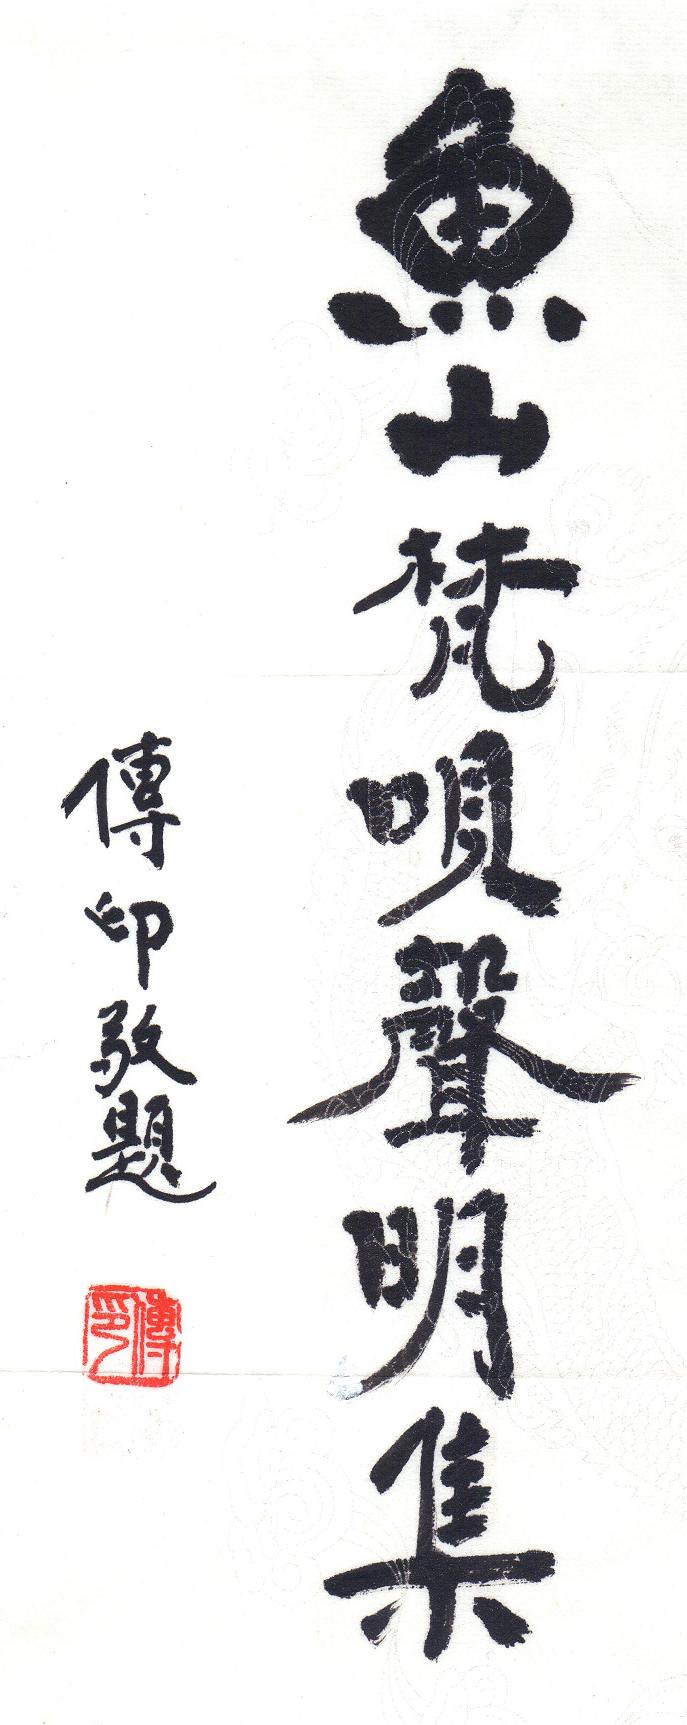 魚山梵唄聲明集
傳印敬題
傳印